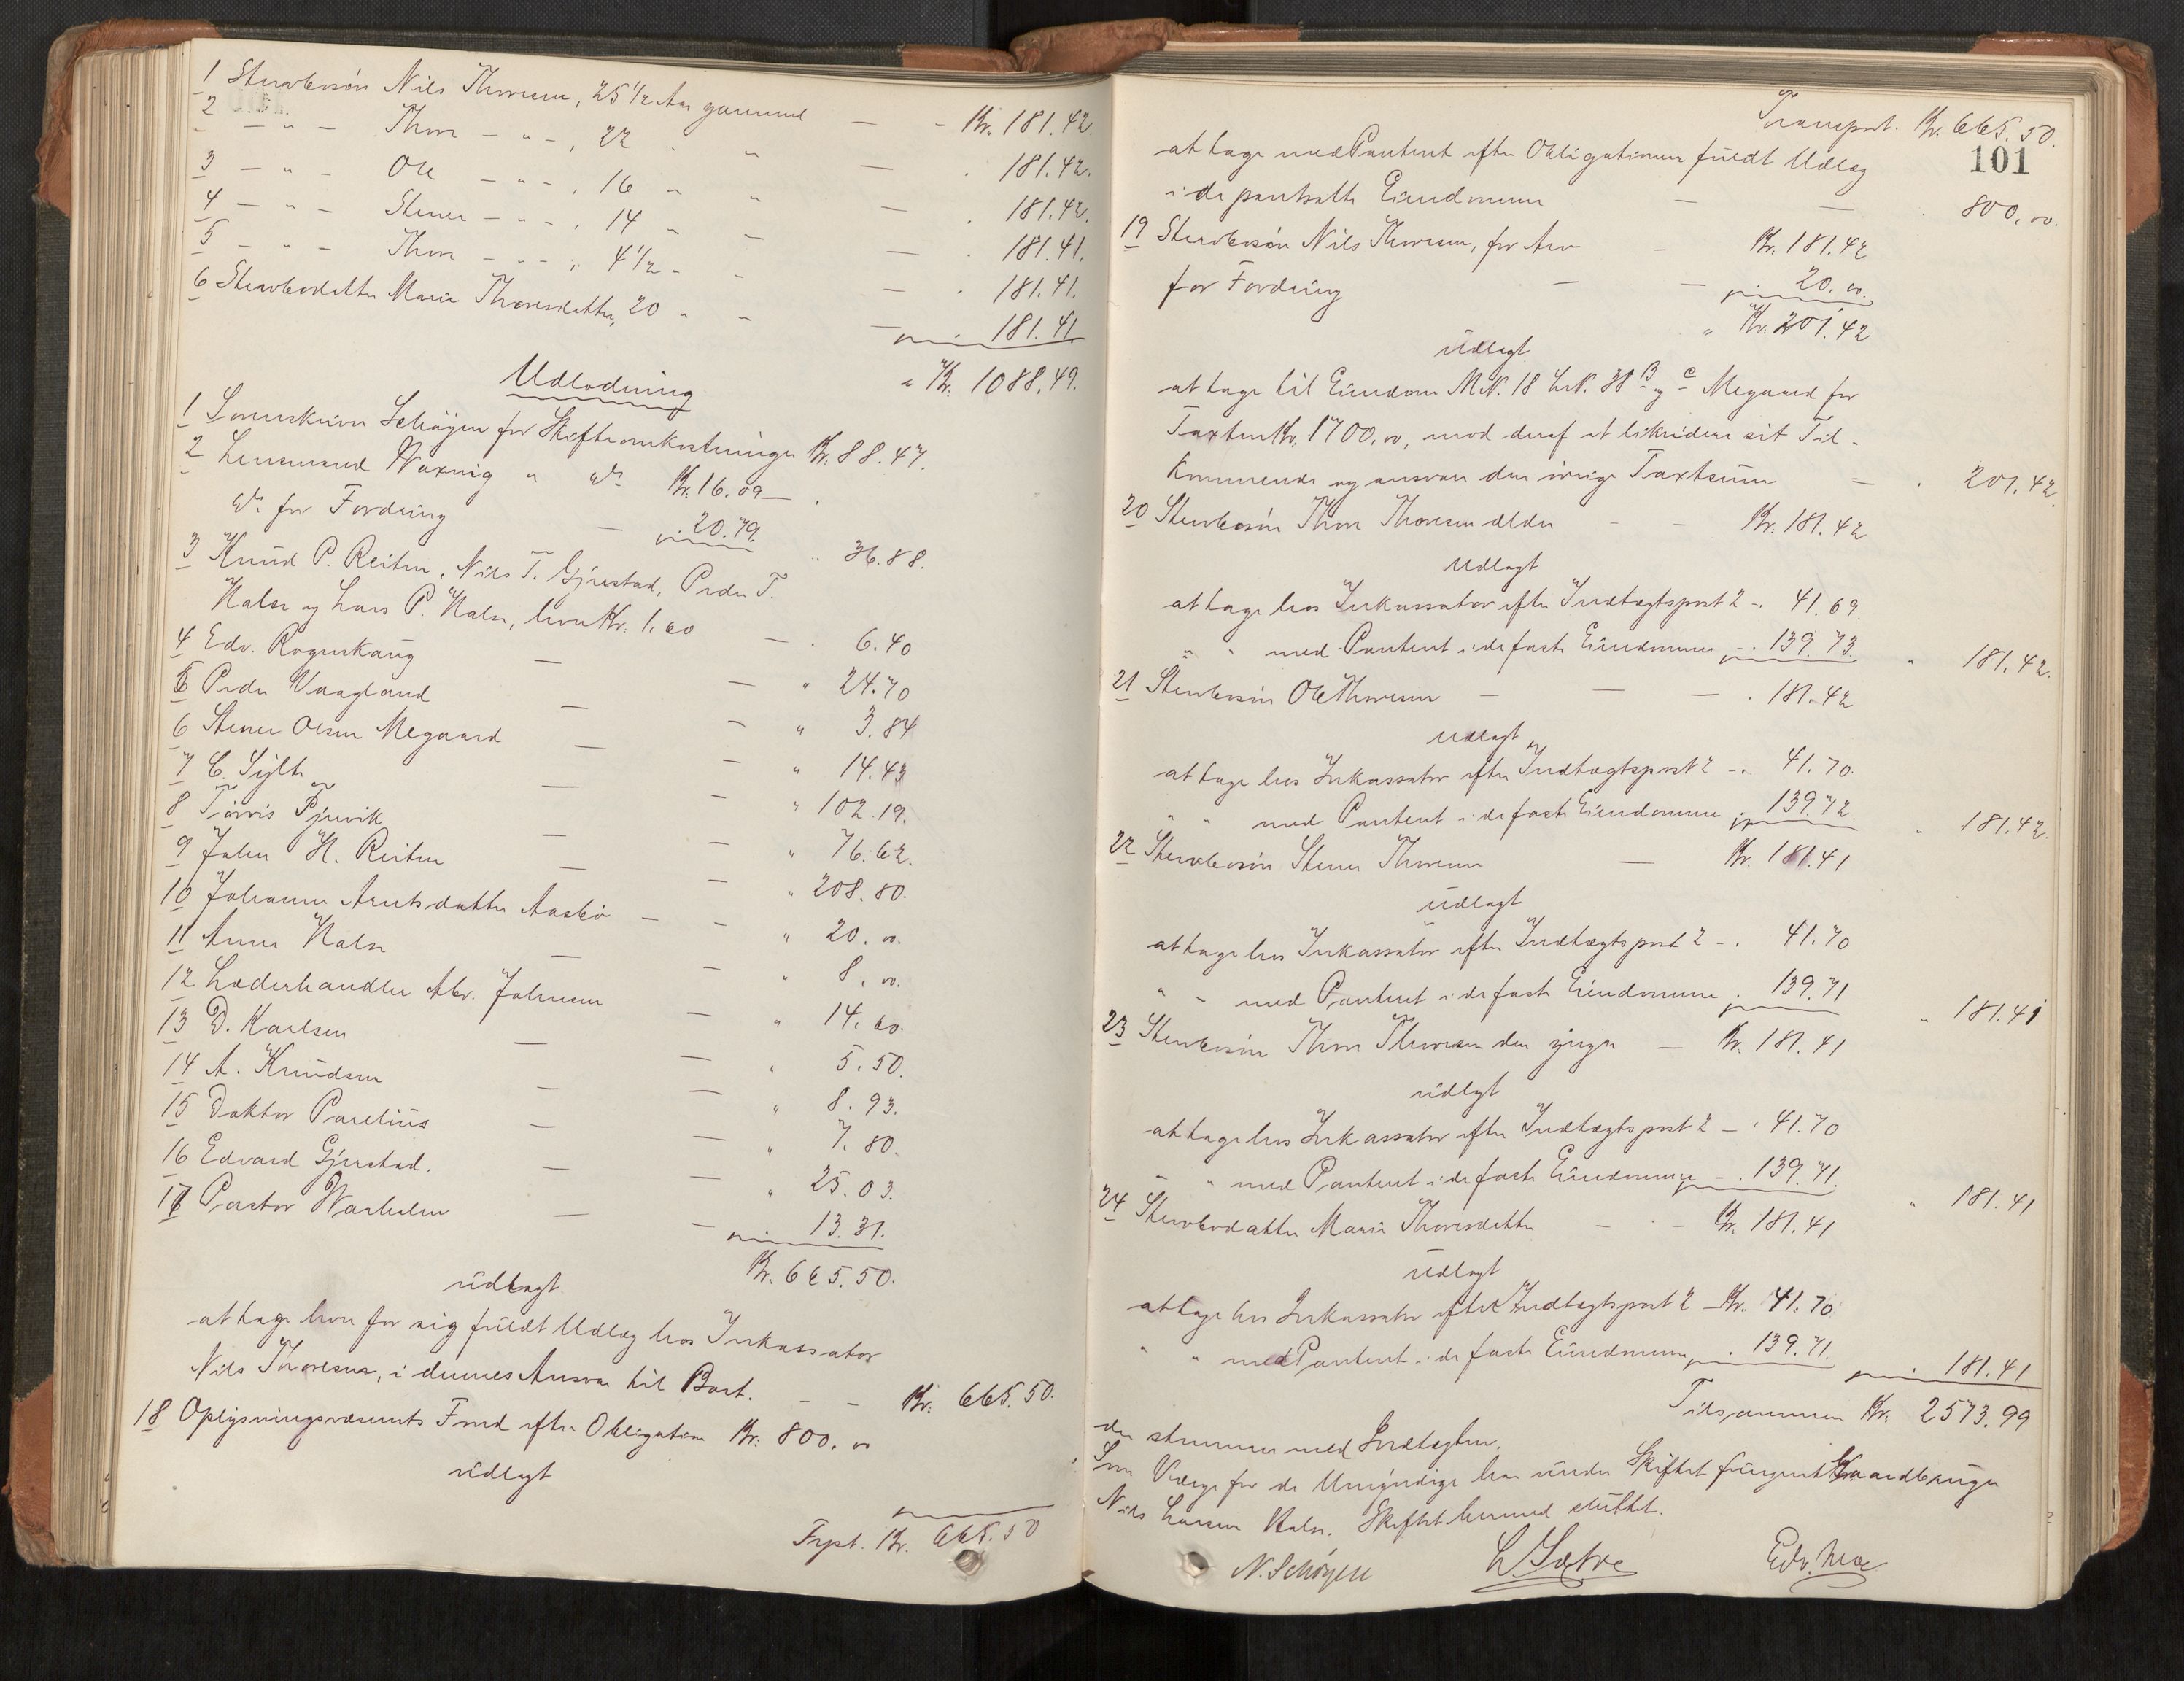 1 Stervbosön Nils Thoresen, 25 1/2 Aar gammel — - Kr. 181.42.
2 — " — Thore — " — , 22 " " — . 181.42.
3 — " — Ole — " — , 16 " " — . 181.42.
4 — " — Stener — " — , 14 " " — . 181.41.
5 — " — Thore — " — , 4 1/2 " " — . 181.41.
6 Stervbodatter Marie Thoresdatter, 20 " " — . 181.41
" Kr. 1088.49.
Udlodning
1 Sorenskriver Schöyen for Skifteomkostninger Kr. 88.47.
2 Lensmand Waxvig " do Kr. 16.09 —
do for Fordring — . 20.79. " 36.88.
3 Knud P. Reiten, Nils T. Gjerstad, Peder T.
Halse og Lars P. Halse, hver Kr. 1.60 — . 6.40
4 Edv. Rognskaug — — " 24.70
5 Peder Vaagland — — " 3.84
6 Stener Olsen Megaard — — " 14.43
7 C. Sylte — — " 102.19.
8 Törris Fjervik — — " 76.62.
9 John H. Reiten — — " 208.80.
10 Johanne Arntsdatter Aasbö — — " 20.00.
11 Anne Halse — — " 8.00.
12 Læderhandler Abr. Johnsen — " 14.60.
13 D. Karlsen — — " 5.50.
14 A. Knudsen — — " 8.93.
15 Doktor Parelius — — " 7.80.
16 Edvard Gjerstad. — — " 25.03.
17 Pastor Warholm — — . 13.31.
Kr. 665.50.
udlagt
at tage hver for sig fuldt Udlæg hos Inkassator
Nils Thoresen, i dennes Ansvar til Boet. — — Kr. 665.50.
18 Oplysningsvæsenets Fond efter Obligation Kr. 800.00
udlagt
Trpt. Kr. 665.50
Transport. Kr. 665.50.
101
at tage med Panteret efter Obligationen fuldt Udlæg
i de pantsatte Eiendomme — — . 800.00.
19 Stervbosön Nils Thoresen, for Arv — Kr. 181.42
for Fordring — — . 20.00.
" Kr. 201.42
udlagt
at tage til Eiendom M.N. 18 L.N. 38 B og C Megaard for
Taxten Kr. 1700.00, mod deraf at likvidere sit Til-
kommende og ansvare den övrige Taxtsum — . 201.42
20 Stervbosön Thore Thoresen ældre — — Kr. 181.42
Udlagt
at tage hos Inkassator efter Indtægtspost 2 - . 41.69
" " med Panteret i de faste Eiendomme - . 139.73. " 181.42.
21 Stervbosön Ole Thoresen — — — . 181.42
Udlagt
at tage hos Inkassator efter Indtægtspost 2 - . 41.70.
" " med Panteret i de faste Eiendomme . 139.72. " 181.42.
22 Stervbosön Stener Thoresen — Kr. 181.41
udlagt
at tage hos Inkassator efter Indtægtspost 2 - . 41.70
" " med Panteret i de faste Eiendomme . 139.71 " 181.41
23 Stervbosön Thore Thoresen den yngre — Kr. 181.41
udlagt
at tage hos Inkassator efter Indtægtspost 2 - . 41.70
" " med Panteret i de faste Eiendomme - . 139.71. " 181.41
24 Stervbodatter Marie Thoresdatter — - — Kr. 181.41
udlagt
at tage hos Inkassator efter Indtægtspost 2 - Kr. 41.70
" " med Panteret i de faste Eiendomme . 139.71. . 181.41
Tilsammen Kr. 2573.99
der stemmer med Indtægten.
Som Værge for de Umyndige har under Skiftet fungeret Gaardbruger
Nils Larsen Halse. Skiftet hermed sluttet.
N. Schöyen L. Sætre Edv. Moe